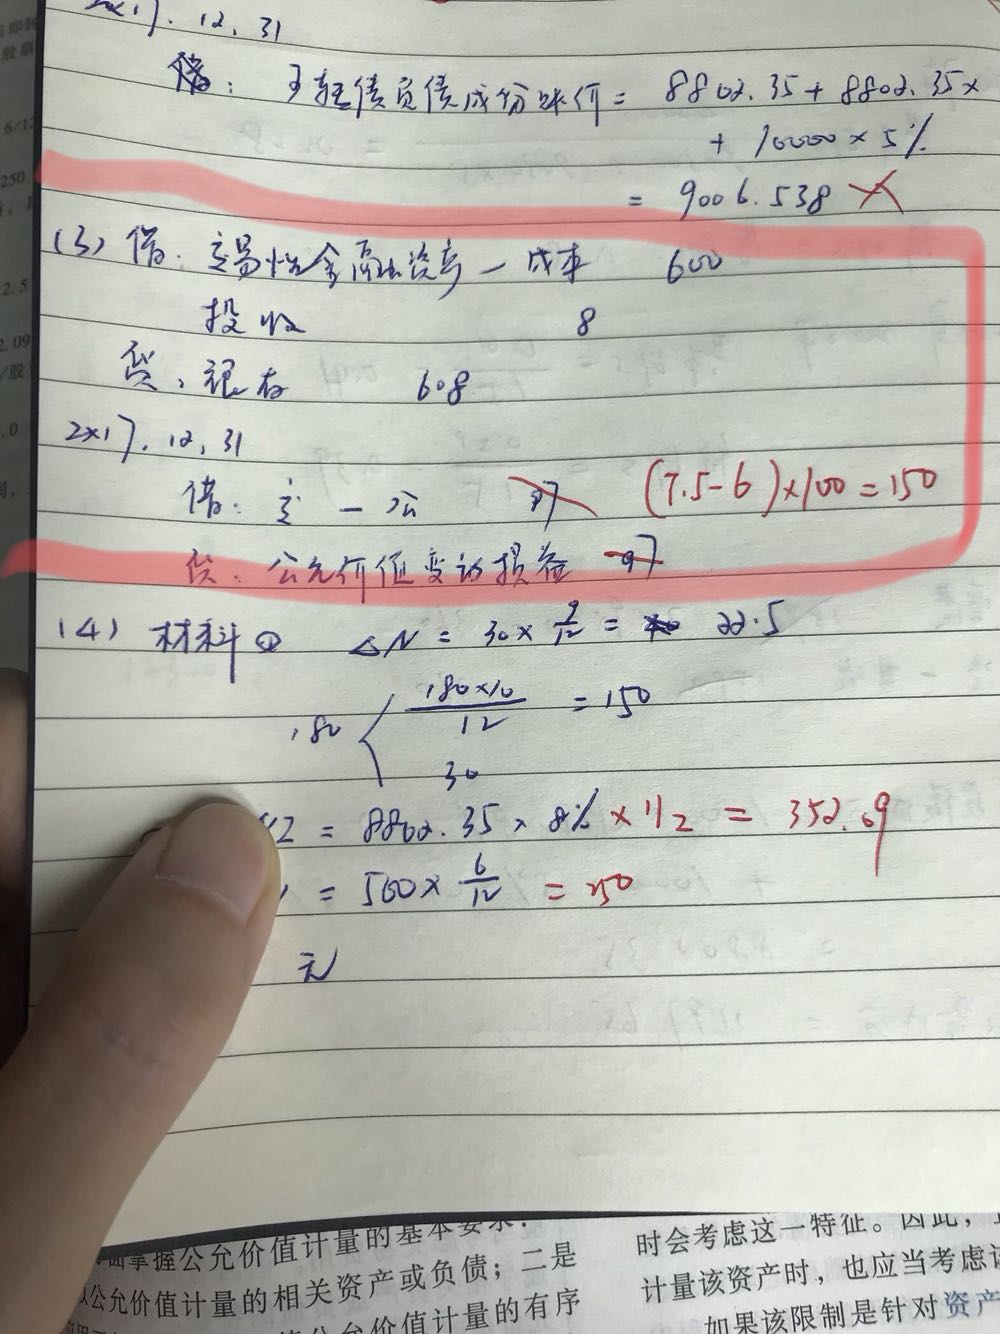 2×17.12.31
借：可转债负债成份账价 = 8802.35 + 8802.35×
+ 10000×5%
= 9006.538 ×
(3) 借：交易性金融资产—成本 600
投收 8
贷：银存 608
2×17.12.31
借：交—公 97 (7.5-6)×100=150
贷：公允价值变动损益 97
(4) 材料① △N = 30×9/12 = 22.5
180 180×10/12 = 150
30
= 8802.35×8%×1/2 = 352.09
= 500×6/12 = 250
无
掌握公允价值计量的基本要求：
公允价值计量的相关资产或负债；二是
公允价值计量的有序
时会考虑这一特征。因此，
计量该资产时，也应当考虑该
如果该限制是针对资产